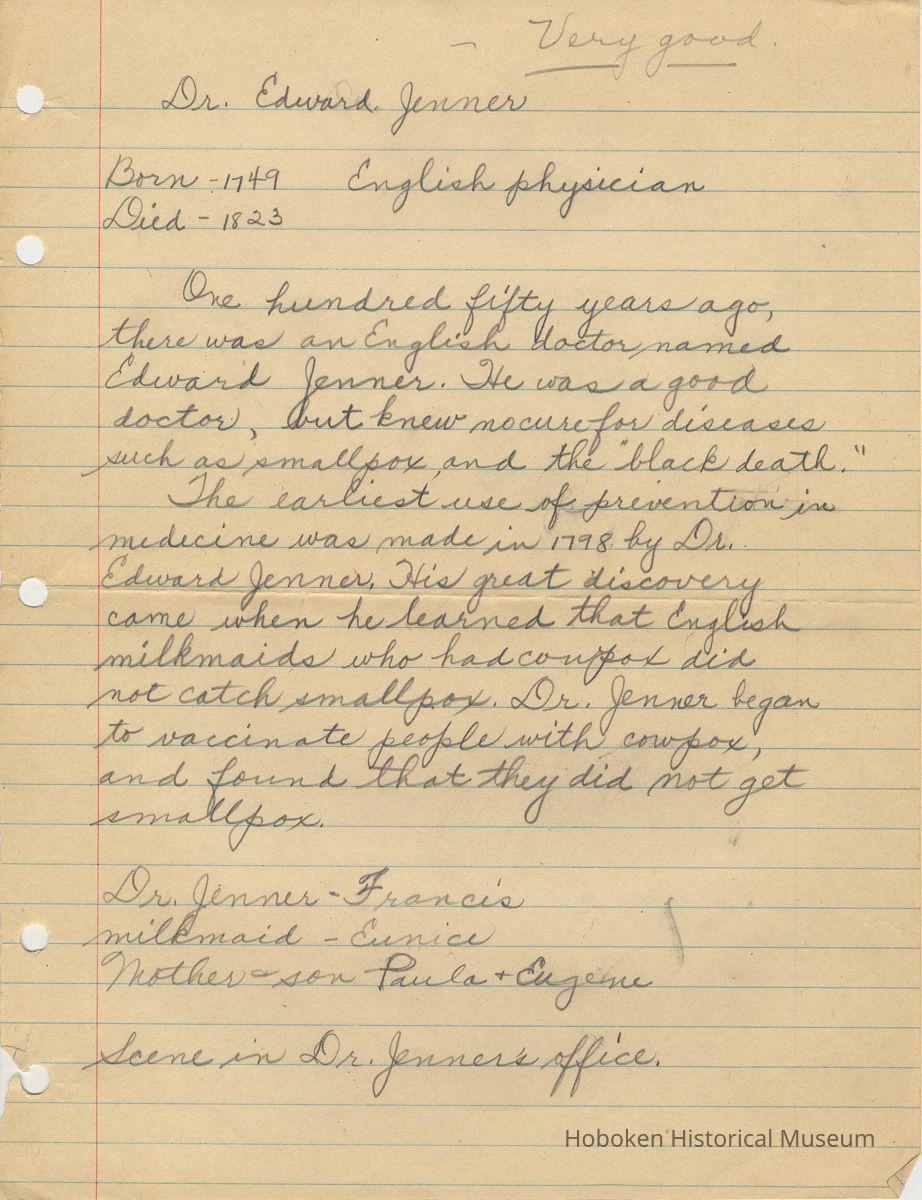 — Very good.
Dr. Edward Jenner
Born - 1749 English physician
Died - 1823
One hundred fifty years ago,
there was an English doctor named
Edward Jenner. He was a good
doctor, but knew no cure for diseases
such as smallpox and the "black death."
The earliest use of prevention in
medecine was made in 1798 by Dr.
Edward Jenner. His great discovery
came when he learned that English
milkmaids who had cowpox did
not catch smallpox. Dr. Jenner began
to vaccinate people with cowpox,
and found that they did not get
smallpox.
Dr. Jenner - Francis
milkmaid - Eunice
Mother & son Paula + Eugene
Scene in Dr. Jenner's office.
Hoboken Historical Museum